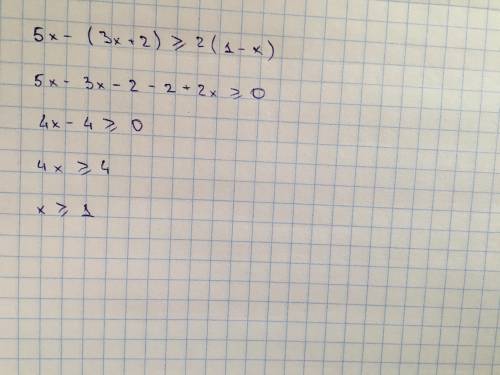 5x - (3x + 2) ⩾ 2(1 - x)
5x - 3x - 2 - 2 + 2x ⩾ 0
4x - 4 ⩾ 0
4x ⩾ 4
x ⩾ 1